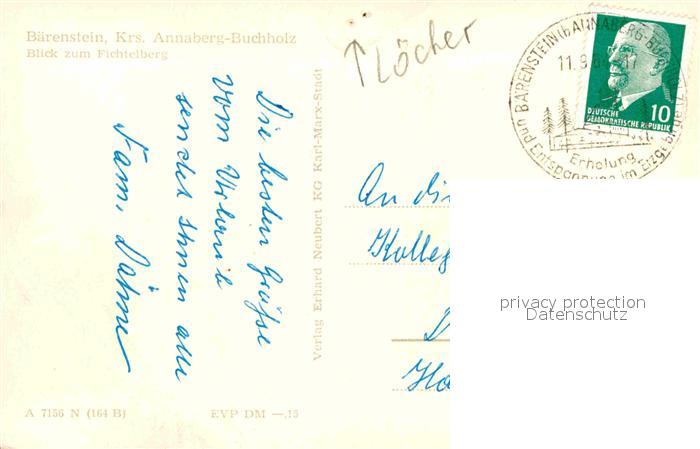 Bärenstein, Krs. Annaberg-Buchholz
Blick zum Fichtelberg
↑ Löcher
Die besten Grüße
vom Urlaub
sendet Ihnen alle
Fam. Dähne
Verlag Erhard Neubert KG Karl-Marx-Stadt
BÄRENSTEIN (KR. ANNABERG-BUCHHOLZ)
11.9.
Erholung
und Entspannung im Erzgebirge
DEUTSCHE
DEMOKRATISCHE REPUBLIK
10
An di
Kolleg
D
Ha
privacy protection
Datenschutz
A 7156 N (164 B)
EVP DM —,15